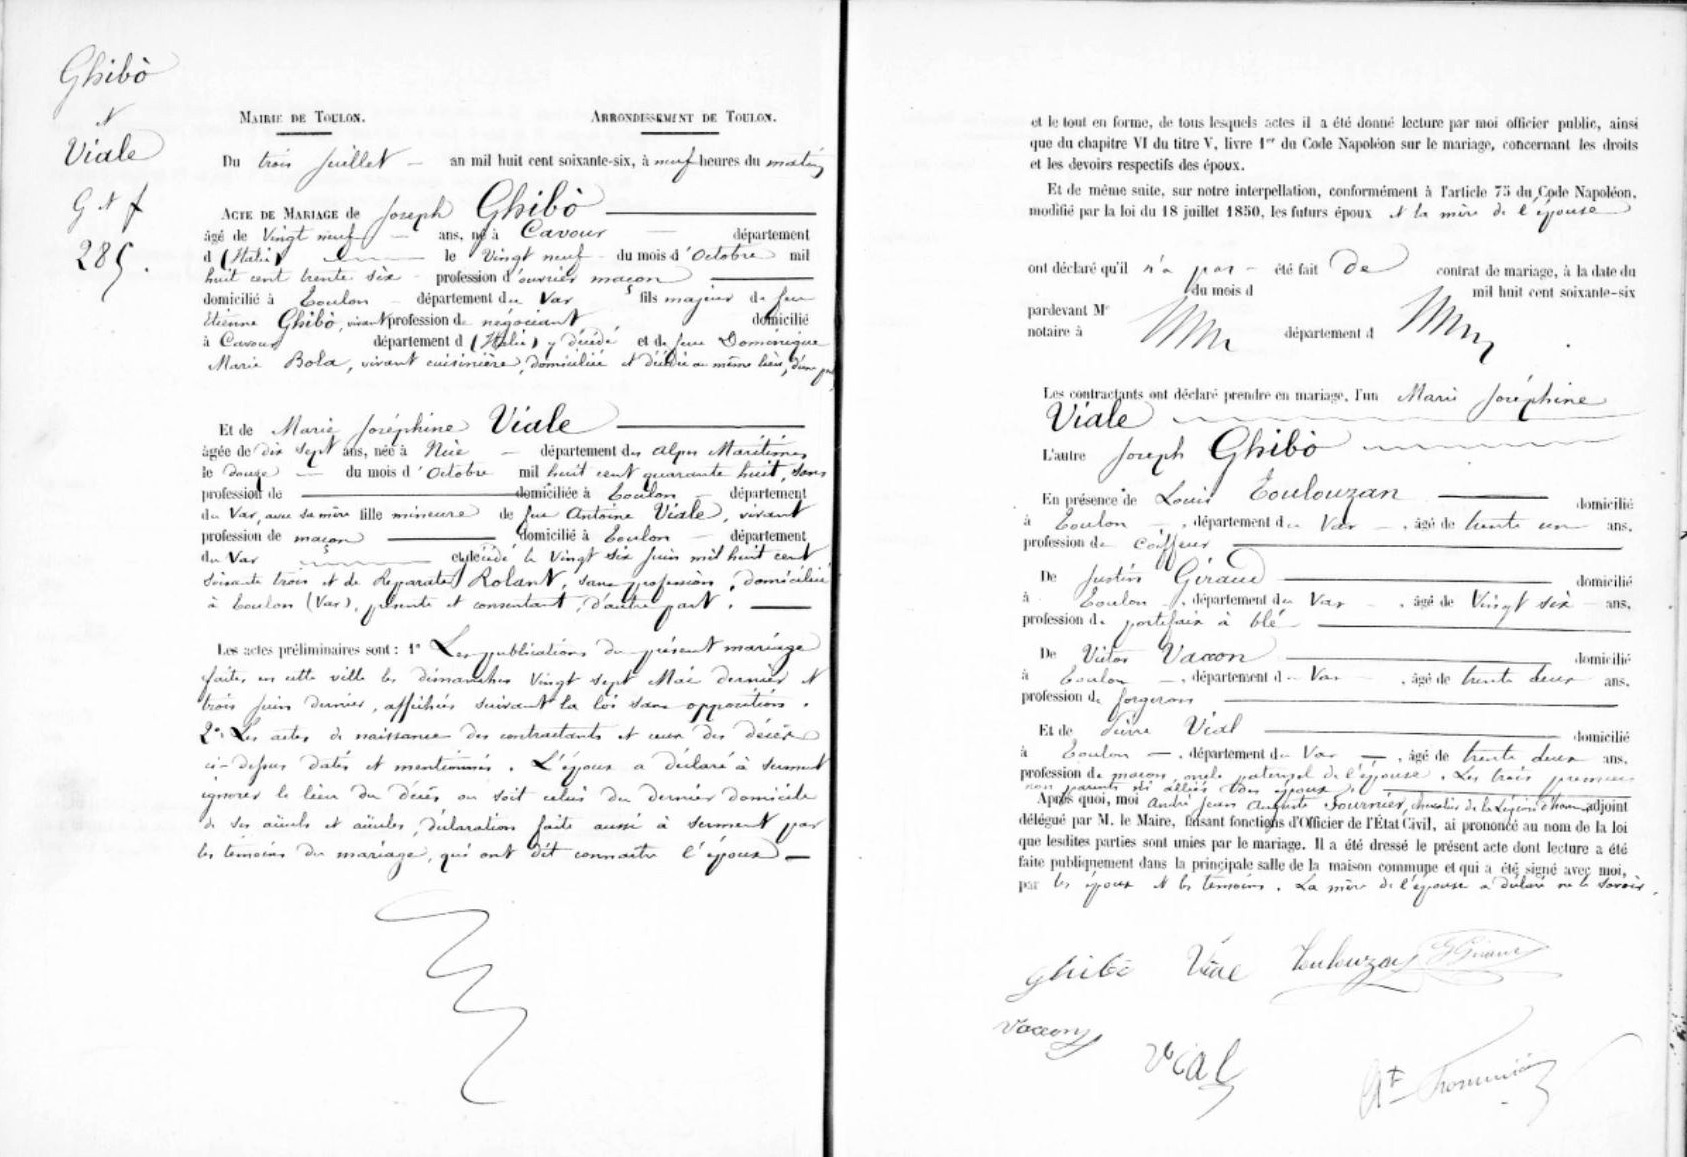 Ghibò
et
Viale
G et f
285.
MAIRIE DE TOULON. ARRONDISSEMENT DE TOULON.
Du trois juillet an mil huit cent soixante-six, à neuf heures du matin
ACTE DE MARIAGE de Joseph Ghibò
âgé de Vingt neuf ans, né à Cavour département
d (Italie) le Vingt neuf du mois d'Octobre mil
huit cent trente six profession d'ouvrier maçon
domicilié à Toulon département du Var fils majeur de feu
Etienne Ghibò, vivant profession de négociant domicilié
à Cavour département d (Italie) y décédé et de feue Dominique
Marie Bola, vivant cuisinière, domiciliée et décédée au même lieu, d'une part
Et de Marie Joséphine Viale
âgée de dix sept ans, née à Nice département des Alpes Maritimes
le douze du mois d'Octobre mil huit cent quarante huit, sans
profession de domiciliée à Toulon département
du Var, avec sa mère fille mineure de feu Antoine Viale, vivant
profession de maçon domicilié à Toulon département
du Var et décédé le Vingt six juin mil huit cent
soixante trois et de Reparate Rolant, sans profession, domiciliée
à Toulon (Var), présente et consentant, d'autre part.
Les actes préliminaires sont : 1° Les publications du présent mariage
faites en cette ville les dimanches Vingt sept Mai dernier et
trois juin dernier, affichées suivant la loi sans oppositions.
2° Les actes de naissance des contractants et ceux des décès
ci-dessus datés et mentionnés. L'époux a déclaré à serment
ignorer le lieu du décès ou soit celui du dernier domicile
de ses aïeuls et aïeules, déclaration faite aussi à serment par
les témoins du mariage, qui ont dit connaître l'époux
et le tout en forme, de tous lesquels actes il a été donné lecture par moi officier public, ainsi
que du chapitre VI du titre V, livre 1er du Code Napoléon sur le mariage, concernant les droits
et les devoirs respectifs des époux.
Et de même suite, sur notre interpellation, conformément à l'article 75 du Code Napoléon,
modifié par la loi du 18 juillet 1850, les futurs époux et la mère de l'épouse
ont déclaré qu'il n'a pas été fait de contrat de mariage, à la date du
du mois d mil huit cent soixante-six
pardevant Me
notaire à département d
Les contractants ont déclaré prendre en mariage, l'un Marie Joséphine
Viale
L'autre Joseph Ghibò
En présence de Louis Toulouzan domicilié
à Toulon, département du Var, âgé de trente un ans,
profession de coiffeur
De Justin Giraud domicilié
à Toulon, département du Var, âgé de Vingt six ans,
profession de portefaix à blé
De Victor Vaccon domicilié
à Toulon, département du Var, âgé de trente deux ans,
profession de forgeron
Et de Pierre Vial domicilié
à Toulon, département du Var, âgé de trente deux ans,
profession de maçon, oncle paternel de l'épouse. Les trois premiers
non parents ni alliés des époux.
Après quoi, moi André Jean Auguste Fournier, chevalier de la Légion d'honneur, adjoint
délégué par M. le Maire, faisant fonctions d'Officier de l'État Civil, ai prononcé au nom de la loi
que lesdites parties sont unies par le mariage. Il a été dressé le présent acte dont lecture a été
faite publiquement dans la principale salle de la maison commune et qui a été signé avec moi,
par les époux et les témoins. La mère de l'épouse a déclaré ne le savoir.
ghibò Viale Toulouzan J Giraud
Vaccon
Vial